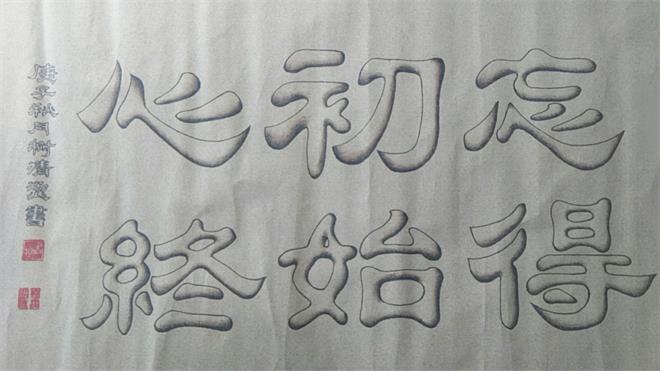 忘初心
得始終
庚子秋月清書